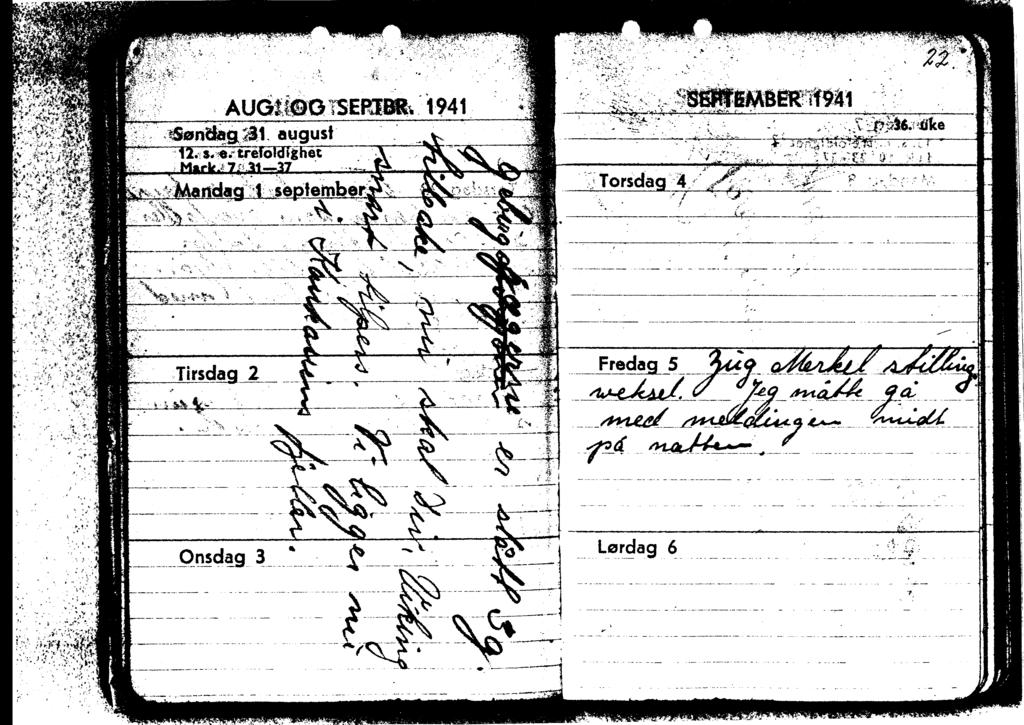 AUG. OG SEPTBR. 1941
Søndag 31. august
12. s. e. trefoldighet
Mark. 7. 31—37
Mandag 1 september
Tirsdag 2
Onsdag 3
er slått 5 g.
tilbake, nu skal Div. Viking
snart hjelpe. Vi ligger nu
i fjeller.
22.
SEPTEMBER 1941
36. uke
Torsdag 4
Fredag 5 Zug Merkel stilling
weksel. Jeg måtte gå
med meldingen midt
på natten.
Lørdag 6